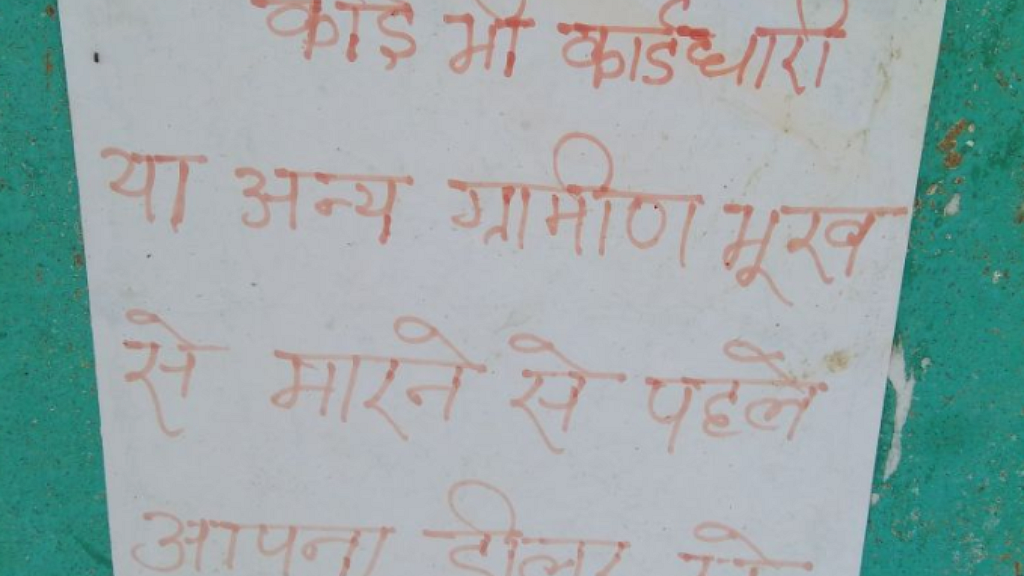 कोई भी कार्डधारी
या अन्य ग्रामीण भूख
से मारने से पहले
आपना डीलर से